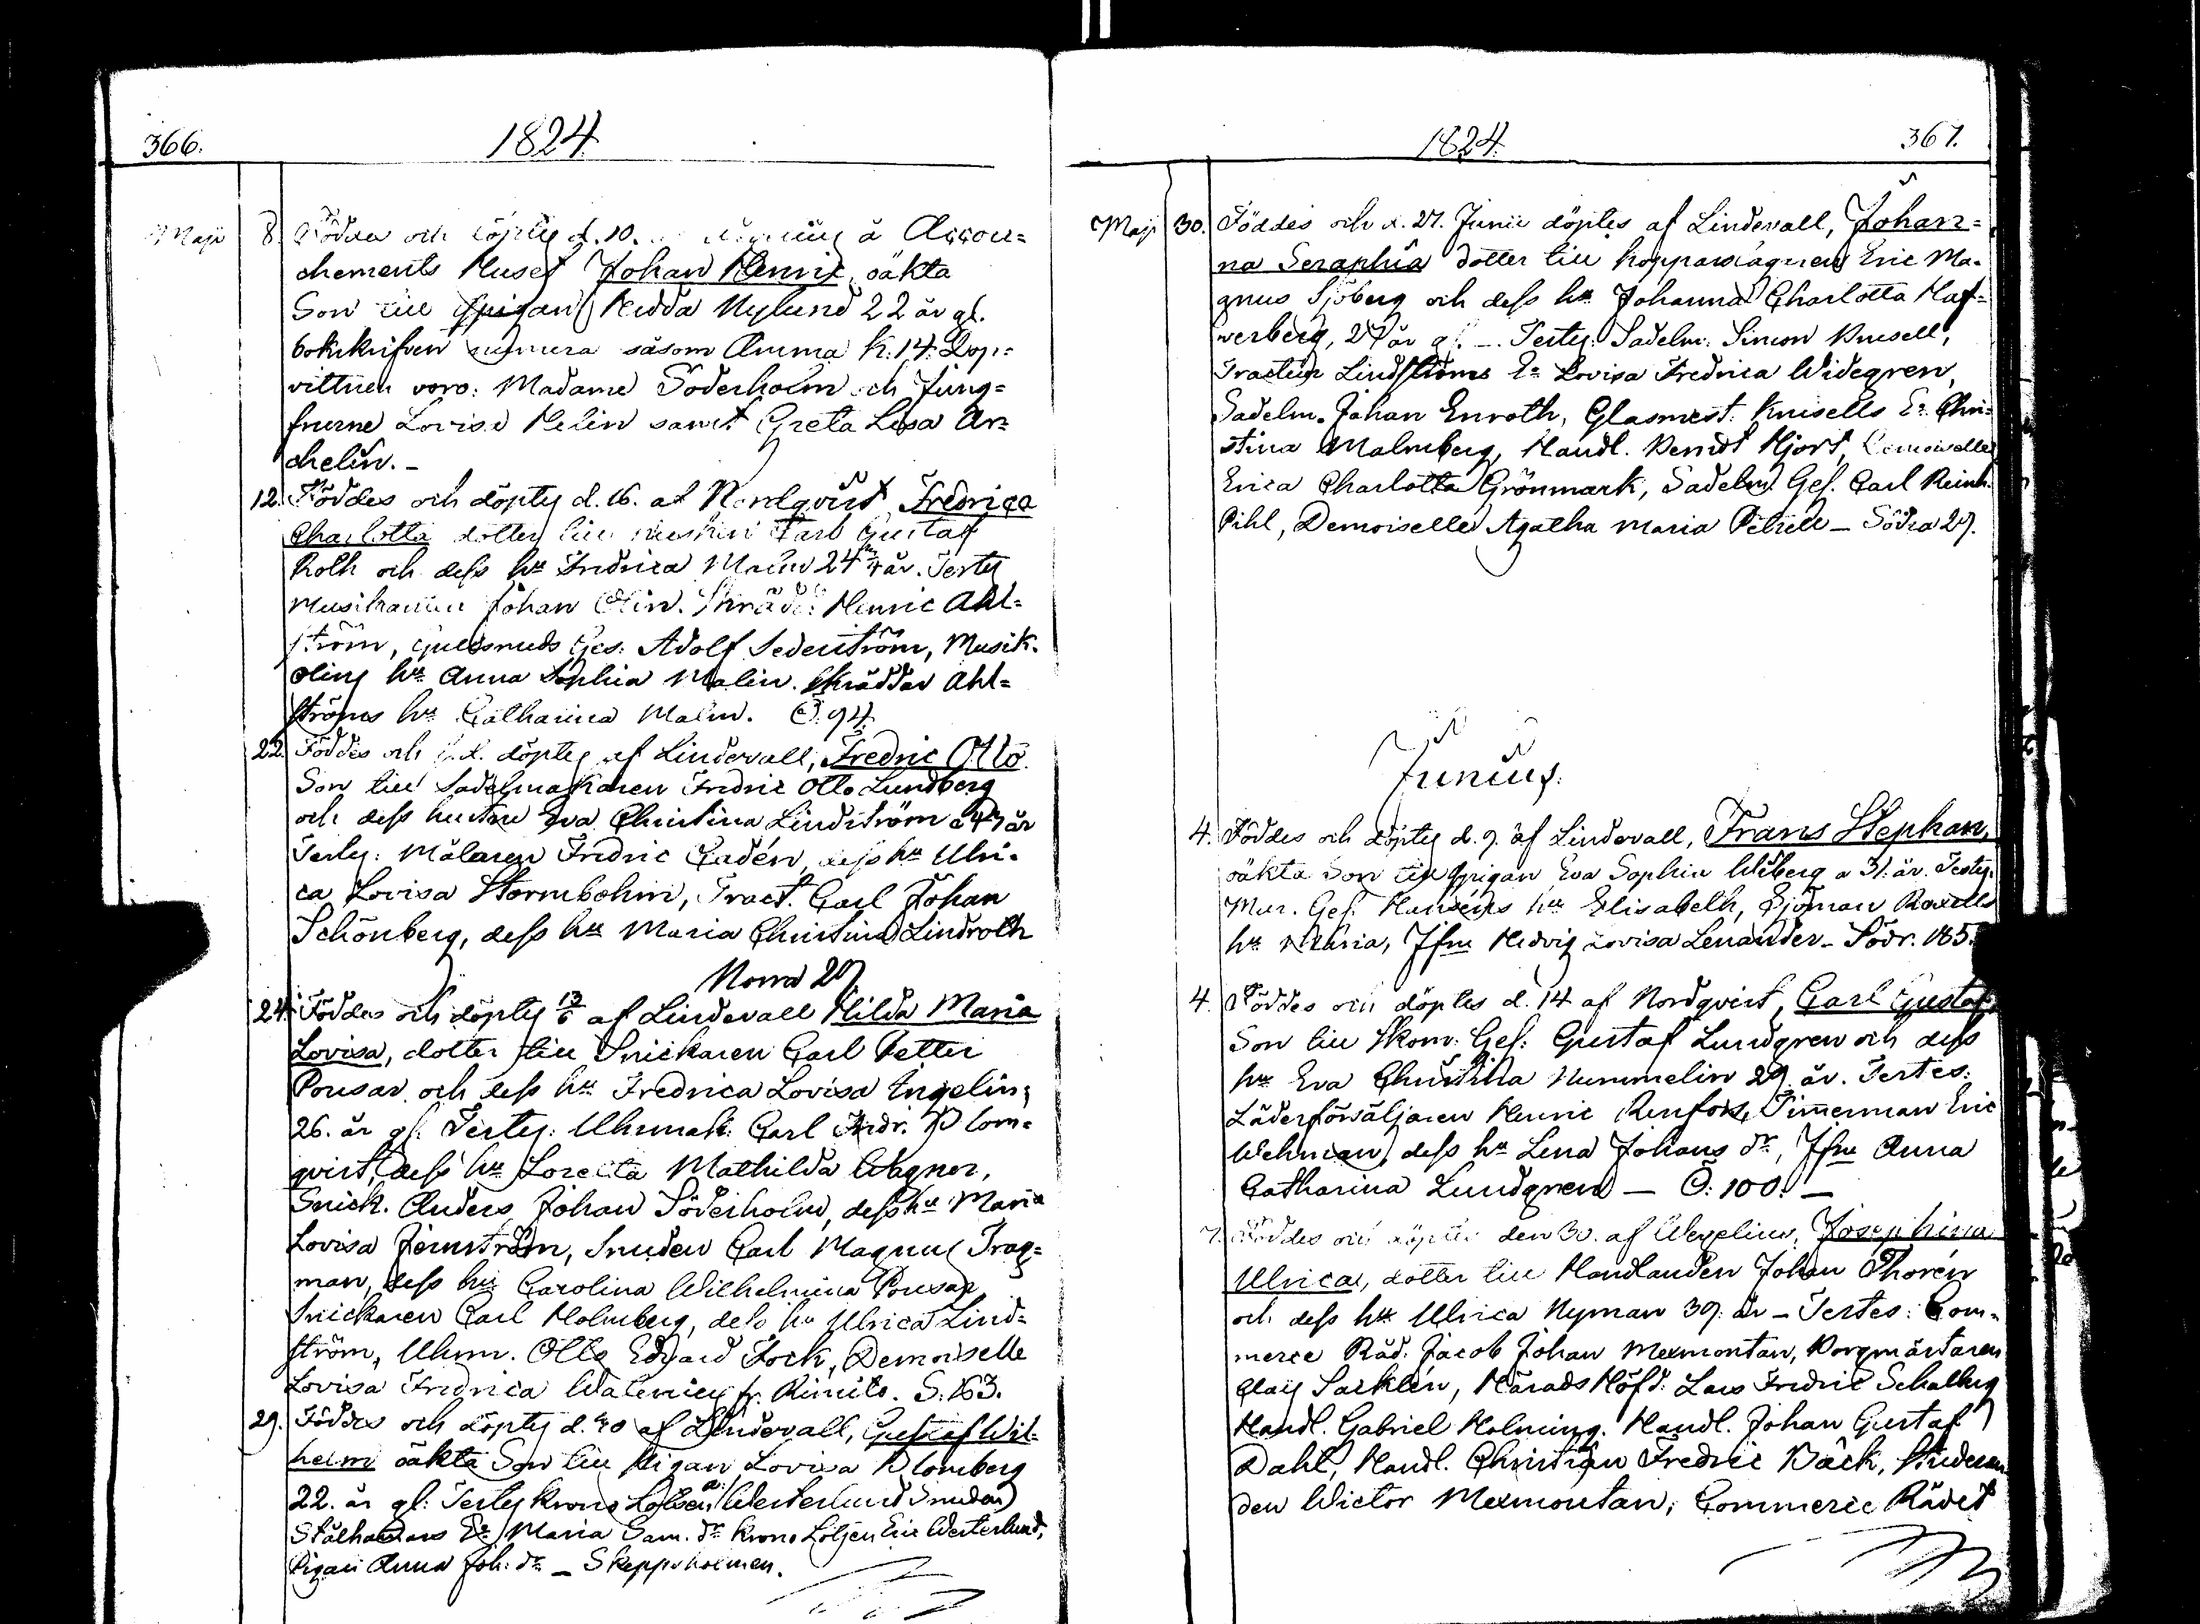 366.
1824.
Maji 8. Föddes och döptes d. 10. å Accou=
chements Huset Johan Henric, oäkta
Son till Pigan Hedda Nylund 22 år gl.
bokskrifven numera såsom Amma K: 14. Dop=
vittnen voro: Madame Söderholm och Jung=
frurne Lovisa Helin samt Greta Lisa Ar=
chelin. –
12. Föddes och döptes d. 16. af Nordqvist Fredrica
Charlotta dotter till Carl Gustaf
Roth och dess hu Fredrica Malm 24 år. Testes
Musikanten Johan Olin. Skrädd. Henric Ahl=
ström, Guldsmeds Ges: Adolf Sederström, Musik.
Olins hu Anna Sophia Malin. Skräddar Ahl=
ströms hu Catharina Malm. Ö. 94.
22. Föddes och döptes af Lindevall, Fredric Otto
Son till Sadelmakaren Fredric Otto Lundberg
och dess hustru Eva Christina Lindström år
Testes: Målaren Fredric Gadén, dess hu Ulri=
ca Lovisa Stormbohm, Tract. Carl Johan
Schönberg, dess hu Maria Christina Lindroth
Norra 29
24. Föddes och döptes 13/6 af Lindevall Hilda Maria
Lovisa, dotter till Snickaren Carl Petter
Pousar och dess hu Fredrica Lovisa Engelin;
26. år gl: Testes: Uhrmak: Carl Fredr. Blom=
qvist, dess hu Loretta Mathilda Wagner,
Snick. Anders Johan Söderholm, dess hu Maria
Lovisa Jernström, Smeden Carl Magnus Trag=
man, dess hu Carolina Wilhelmina Pousar
Snickaren Carl Holmberg, dess hu Ulrica Lind=
ström, Uhrm. Otto Edvard Fock, Demoiselle
Lovisa Fredrica Walenius fr. Rimito. S: 163.
29. Föddes och döptes d. 30 af Lindevall, Gustaf Wil=
helm oäkta Son till Pigan Lovisa Blomberg
22. år gl: Testes Krono Lotsen Westerlund Smeden
Stålhanes E: Maria Sam. dr Krono Lotsen Eric Westerlund,
Pigan Anna Joh: dr – Skeppsholmen.
1824.
367.
Maji 30. Föddes och d. 27. Junii döptes af Lindevall, Johan=
na Seraphia dotter till Kopparslagaren Eric Ma=
gnus Sjöberg och dess hu Johanna Charlotta Haf=
verberg, 27 år gl. – Testes: Sadelm: Simon Brusell,
Tracteur Lindströms E: Lovisa Fredrica Widegren,
Sadelm. Johan Enroth, Glasmest: Knisells E: Chri=
stina Malmberg, Handl. Berndt Hjort, Demoiselle
Erica Charlotta Grönmark, Sadelm. Ges. Carl Reinh.
Pihl, Demoiselle Agatha Maria Petrell – Södra 27.
Junius.
4. Föddes och döptes d. 9. af Lindevall, Frans Stephan,
oäkta Son till Pigan Eva Sophia Wiberg a 31. år. Testes.
Mur. Ges. Hanséns hu Elisabeth, Sjöman Roxells
hu Maria, Jfru Hedvig Lovisa Lenander – Södr. 185.
4. Föddes och döptes d. 14 af Nordqvist, Carl Gustaf,
Son till Skom: Ges: Gustaf Lundgren och dess
hu Eva Christina Nummelin 29. år. Testes:
Läderförsäljaren Henric Renfors, Timmerman Eric
Wehman, dess hu Lena Johans dr, Jfru Anna
Catharina Lundgren — Ö: 100. —
7. Föddes och döptes den 30. af Wegelius, Josephina
Ulrica, dotter till Handlanden Johan Thorén
och dess hu Ulrica Nyman 39. år – Testes: Com=
merce Råd. Jacob Johan Mexmontan, Borgmästaren
Clas Sacklén, Härads Höfd: Lars Fredric Schalberg
Handl. Gabriel Holming. Handl. Johan Gustaf
Dahl, Handl. Christian Fredric Bäck, Studeran
den Wictor Mexmontan, Commerce Rådet